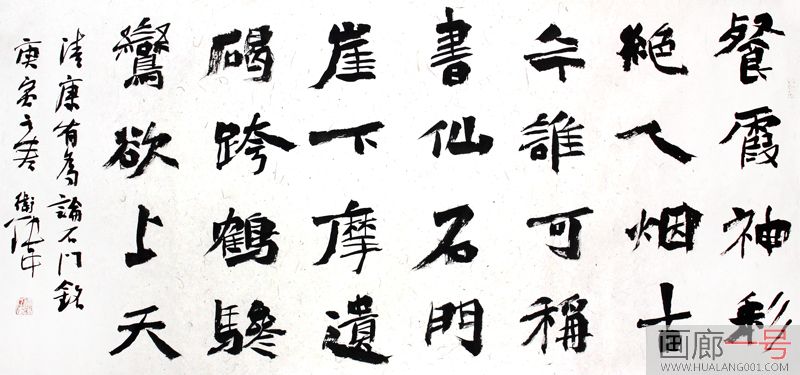 餐霞神彩
絕人烟古
今誰可稱
書仙石門
崖下摩遺
碣跨鶴驂
鸞欲上天
清康有為論石門銘
庚寅之春 衛
画廊一号
WWW.HUALANG001.COM